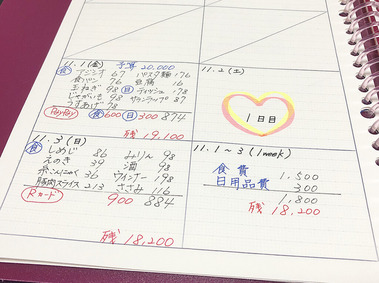 11.1(金) 予算 20,000
食 アジシオ 67 パスタ麺 176
食パン 76 豆腐 16
玉ねぎ 98 日 ティッシュ 178
じゃがいも 98 サランラップ 87
うすあげ 78
PayPay 食600 日300 874
残 19,100
11.2(土)
1日目
11.3(日)
食 しめじ 86 みりん 98
えのき 39 酒 98
糸こんにゃく 36 ウインナー 198
豚肉スライス 213 ささみ 116
Rカード 900 884
残 18,200
11.1~3 (1week)
食費 1,500
日用品費 300
1,800
残 18,200